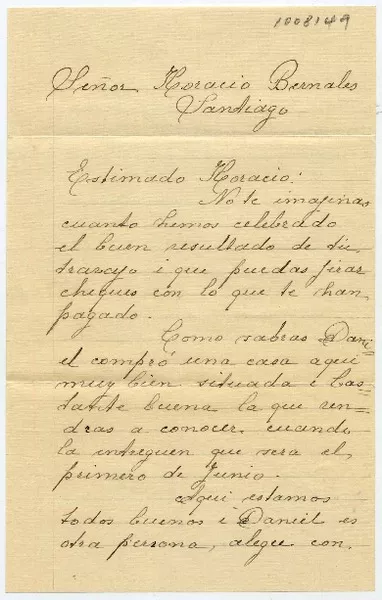 1008149
Señor Horacio Bernales
Santiago
Estimado Horacio:
No te imajinas
cuanto hemos celebrado
el buen resultado de tu
trabajo i que puedas jirar
cheques con lo que te han
pagado.
Como sabras Dani-
el compró una casa aqui
muy bien situada i bas=
tante buena la que ven=
dras a conocer cuando
la intreguen que sera el
primero de Junio.
Aqui estamos
todos buenos i Daniel es
otra persona, alegre con.